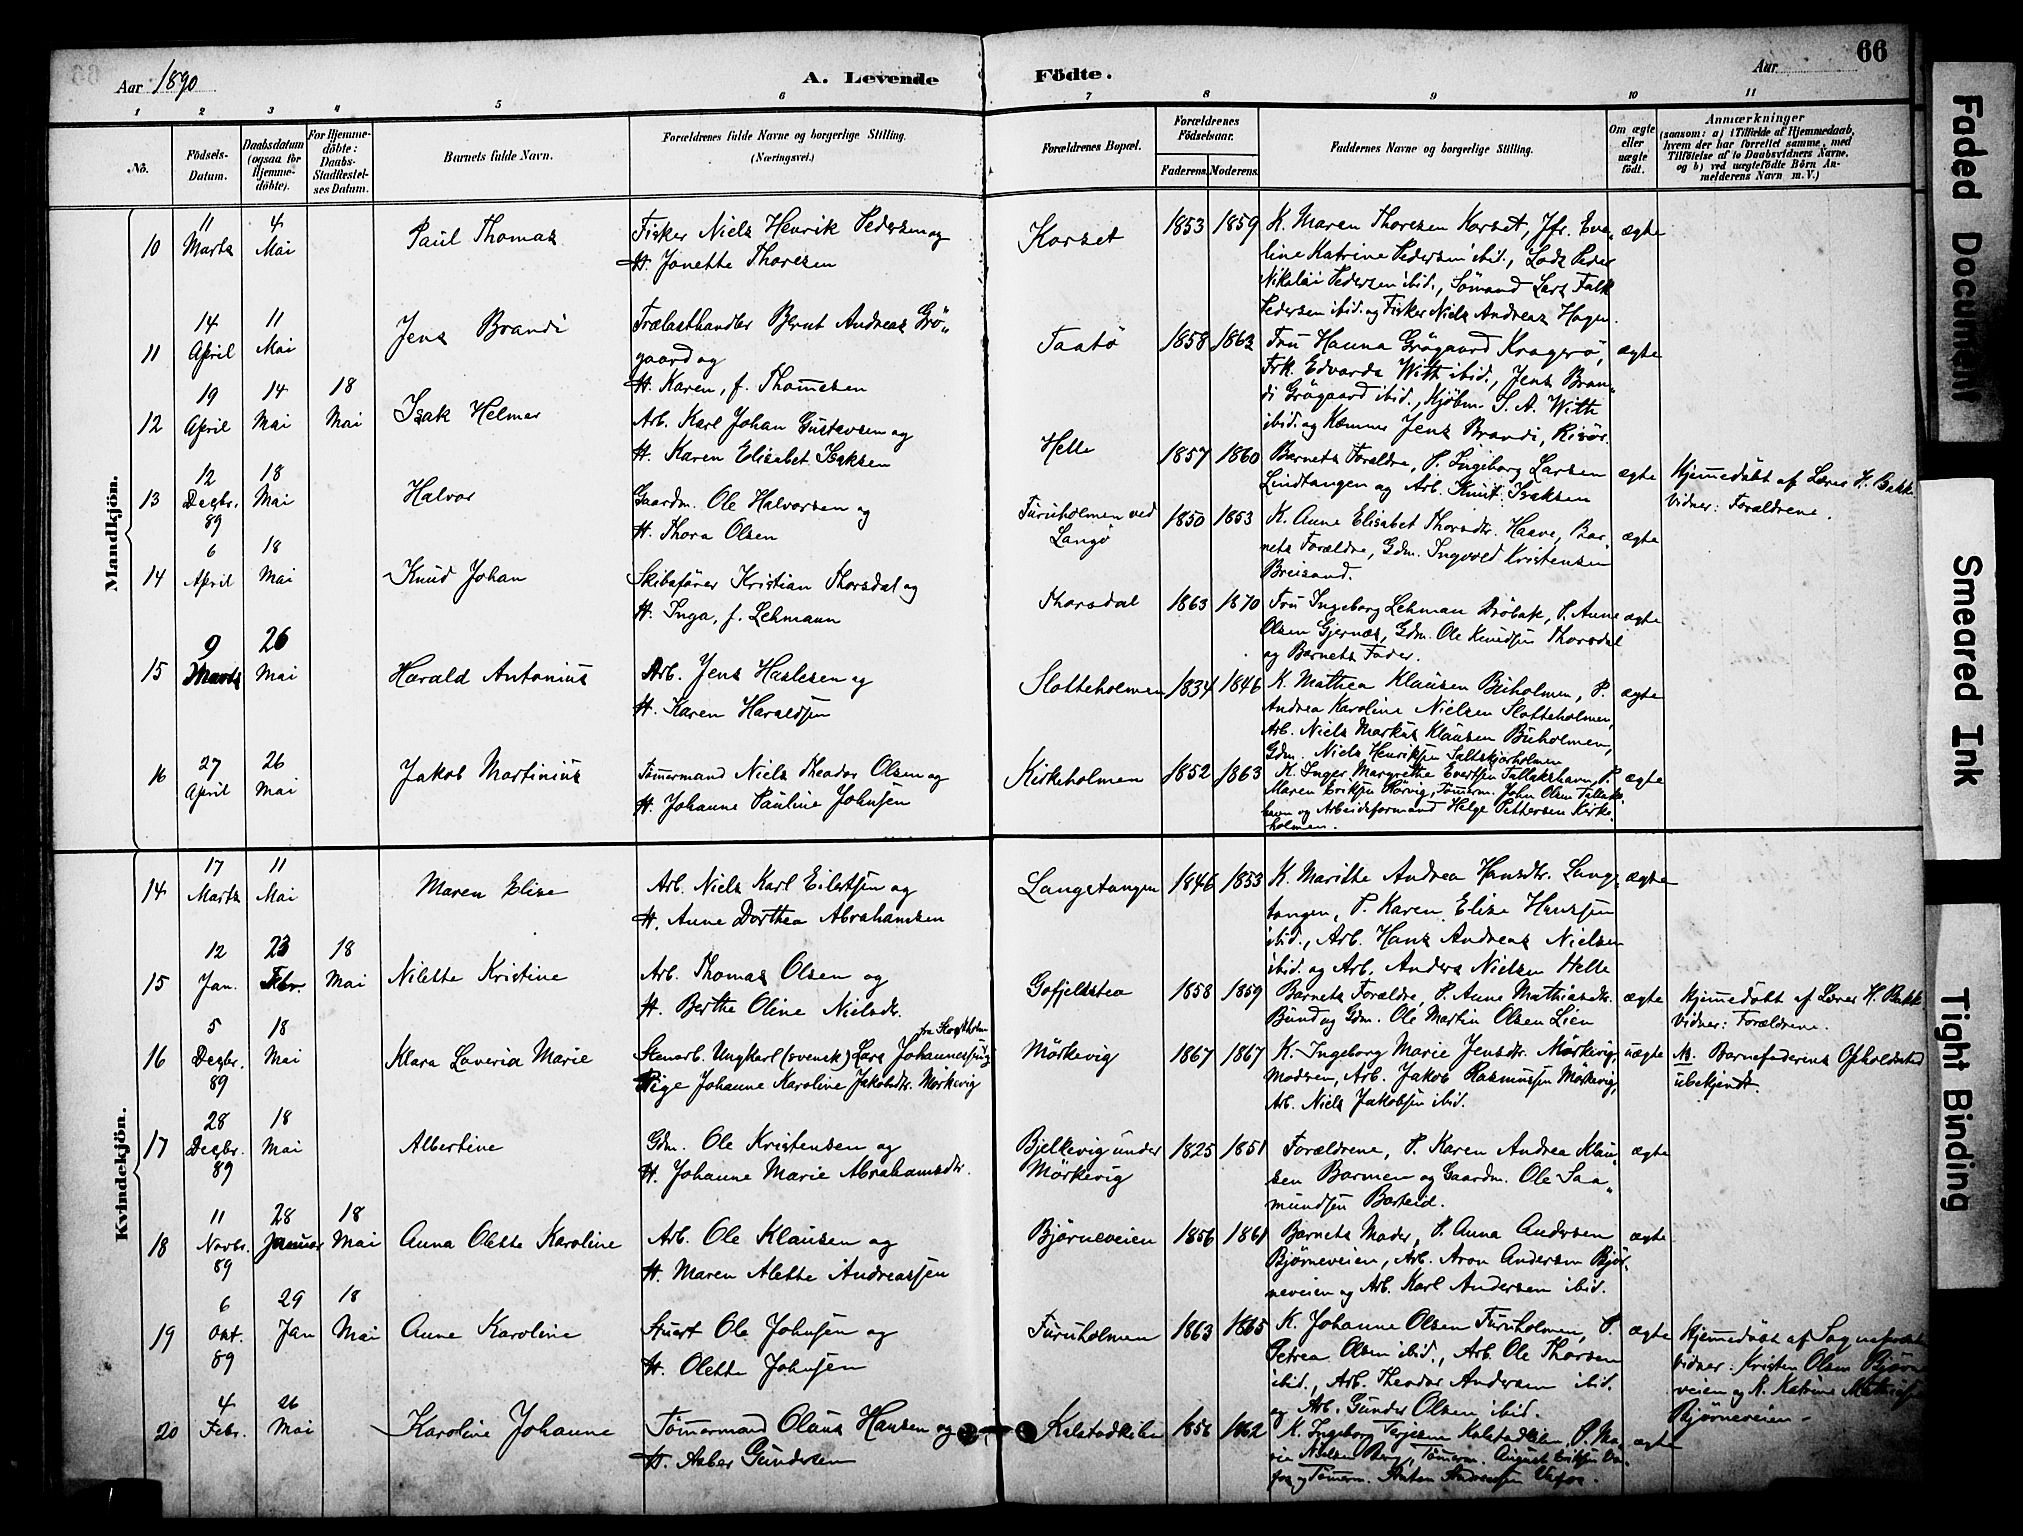 66
Aar 1890
A. Levende Födte.
Aar
1 2 3 4 5 6 7 8 9 10 11
No.
Födsels-Datum.
Daabsdatum (ogsaa for Hjemme-döbte).
For Hjemme-döbte: Daabs-Stadfestel-ses Datum.
Barnets fulde Navn.
Forældrenes fulde Navne og borgerlige Stilling.
(Næringsvei.)
Forældrenes Bopæl.
Forældrenes Födselsaar.
Faderens. Moderens.
Faddernes Navne og borgerlige Stilling.
Om ægte eller uægte födt.
Anmærkninger
(saasom: a) i Tilfælde af Hjemmedaab,
hvem der har forrettet samme, med
Tilföielse af to Daabsvidners Navne.
og b) ved uægtefödte Börn An-
melderens Navn m. V.)
Mandkjön.
10 11 Marts 4 Mai Paul Thomas
Fisker Niels Henrik Pedersen og
H. Jonette Thoresen
Korset 1853 1859
K. Maren Thoresen Korset, Jfr. Eve-
line Katrine Pedersen ibid., Lods Peder
Nikolai Pedersen ibid., Sömand Lars Falk
Pedersen ibid. og Fisker Niels Andreas Hagen.
ægte
11 14 April 11 Mai Jens Brandi
Trælasthandler Bernt Andreas Grö-
gaard og
H. Karen, f. Thomesen
Taatö 1858 1863
Fru Hanna Grögaard Kragerö,
Frk. Edvarda With ibid., Jens Bran-
di Grögaard ibid., Kjöbm. S. A. With
ibid. og Kæmner Jens Brandi, Risör.
ægte
12 19 April 14 Mai 18 Mai Isak Helmer
Arb. Karl Johan Gustavsen og
H. Karen Elisabet Isaksen
Helle 1857 1860
Barnets Forældre, P. Ingeborg Larsen
Lindtangen og Arb. Knut Isaksen
ægte
Hjemmedöbt af Lærer H. Bakk
Vidner: Forældrene.
13 12 Decbr. 89 18 Mai Halvor
Gaardm. Ole Halvorsen og
H. Thora Olsen
Furuholmen ved
Langö 1850 1853
K. Anne Elisabet Thorsdtr. Haave, Bar-
nets Forældre, Gdm. Ingvold Kristensen
Breisand.
ægte
14 6 April 18 Mai Knud Johan
Skibsförer Kristian Thorsdal og
H. Inga, f. Lehmann
Thorsdal 1863 1870
Fru Ingeborg Lehman Dröbak, P. Anne
Olsen Gjernæs, Gdm. Ole Knudsen Thorsdal
og Barnets Fader.
ægte
15 9 Marts 26 Mai Harald Antonius
Arb. Jens Haslesen og
H. Karen Haraldsen
Slotteholmen 1834 1846
K. Mathea Klausen Buholmen, P.
Andrea Karoline Nielsen Slotteholmen,
Arb. Niels Markus Klausen Buholmen,
Gdm. Niels Henriksen Saltskjærholmen
ægte
16 27 April 26 Mai Jakob Martinius
Tömmermand Niels Theodor Olsen og
H. Johanne Pauline Johnsen
Kirkeholmen 1852 1863
K. Inger Margrethe Evertsen Tallakshavn, P.
Maren Eriksen Rörvig, Tömmerm. John Olsen Tallaks-
havn og Arbeidsformand Helge Pettersen Kirke-
holmen.
ægte
Kvindekjön.
14 17 Marts 11 Mai Maren Elise
Arb. Niels Karl Eilertsen og
H. Anne Dorthea Abrahamsen
Langetangen 1846 1853
K. Marithe Andrea Hansdtr. Lang-
tangen, P. Karen Elise Hanssen
ibid., Arb. Hans Andreas Nielsen
ibid. og Arb. Anders Nielsen Helle
ægte
15 12 Jan. 23 Febr. 18 Mai Nilette Kristine
Arb. Thomas Olsen og
H. Berthe Oline Nielsdtr.
Gofjeldstea 1858 1859
Barnets Forældre, P. Anne Mathiasdtr.
Bund og Gdm. Ole Martin Olsen Lien
ægte
Hjemmedöbt af Lærer H. Bakk
Vidner: Forældrene.
16 5 Decbr. 89 18 Mai Klara Laverid Marie
Stenarb. Ungkarl (svensk) Lars Johannessen og
Pige Johanne Karoline Jakobsdtr. Mörkevig
Mörkevig 1867 1867
K. Ingeborg Marie Jensdtr. Mörkevig,
Moderen, Arb. Jakob Rasmussen Mörkevig,
Arb. Niels Jakobsen ibid.
uægte
NB. Barnefaderens Opholdssted
ubekjendt.
17 28 Decbr. 89 18 Mai Albertine
Gdm. Ole Kristensen og
H. Johanne Marie Abrahamsdtr.
Bjelkevig under
Mörkevig 1825 1851
Forældrene, P. Karen Andrea Klau-
sen Barmen og Gaardm. Ole Saa-
mundsen Barteid.
ægte
18 11 Novbr. 89 28 Januar 18 Mai Anna Olette Karoline
Arb. Ole Klausen og
H. Maren Alette Andreassen
Bjørneveien 1856 1861
Barnets Moder, P. Anna Andersen
Bjørneveien, Arb. Aron Andersen Bjør-
neveien og Arb. Karl Andersen ibid.
ægte
19 6 Okt. 89 29 Jan 18 Mai Anne Karoline
Stuert Ole Johnsen og
H. Olette Johnsen
Furuholmen 1863 1865
K. Johanne Olsen Furuholmen, P.
Petrea Olsen ibid., Arb. Ole Thorsen
ibid., Arb. Theodor Andersen ibid.
og Arb. Gunder Olsen ibid.
ægte
Hjemmedöbt af Sognepræsten
Vidner: Kristen Olsen Bjørne
veien og K. Katrine Mathisen
Bjørneveien.
20 4 Febr. 26 Mai Karoline Johanne
Tömmermand Olaus Hansen og
H. Asber Gundersen
Kalstadkilen 1856 1862
K. Ingeborg Terjesen Kalstadkilen, P. Ma-
rie Nielsen Berg, Tömerm. August Eriksen Va-
fos og Tömerm. Anton Andersen Vafos.
ægte
Faded Document
Smeared Ink
Tight Binding